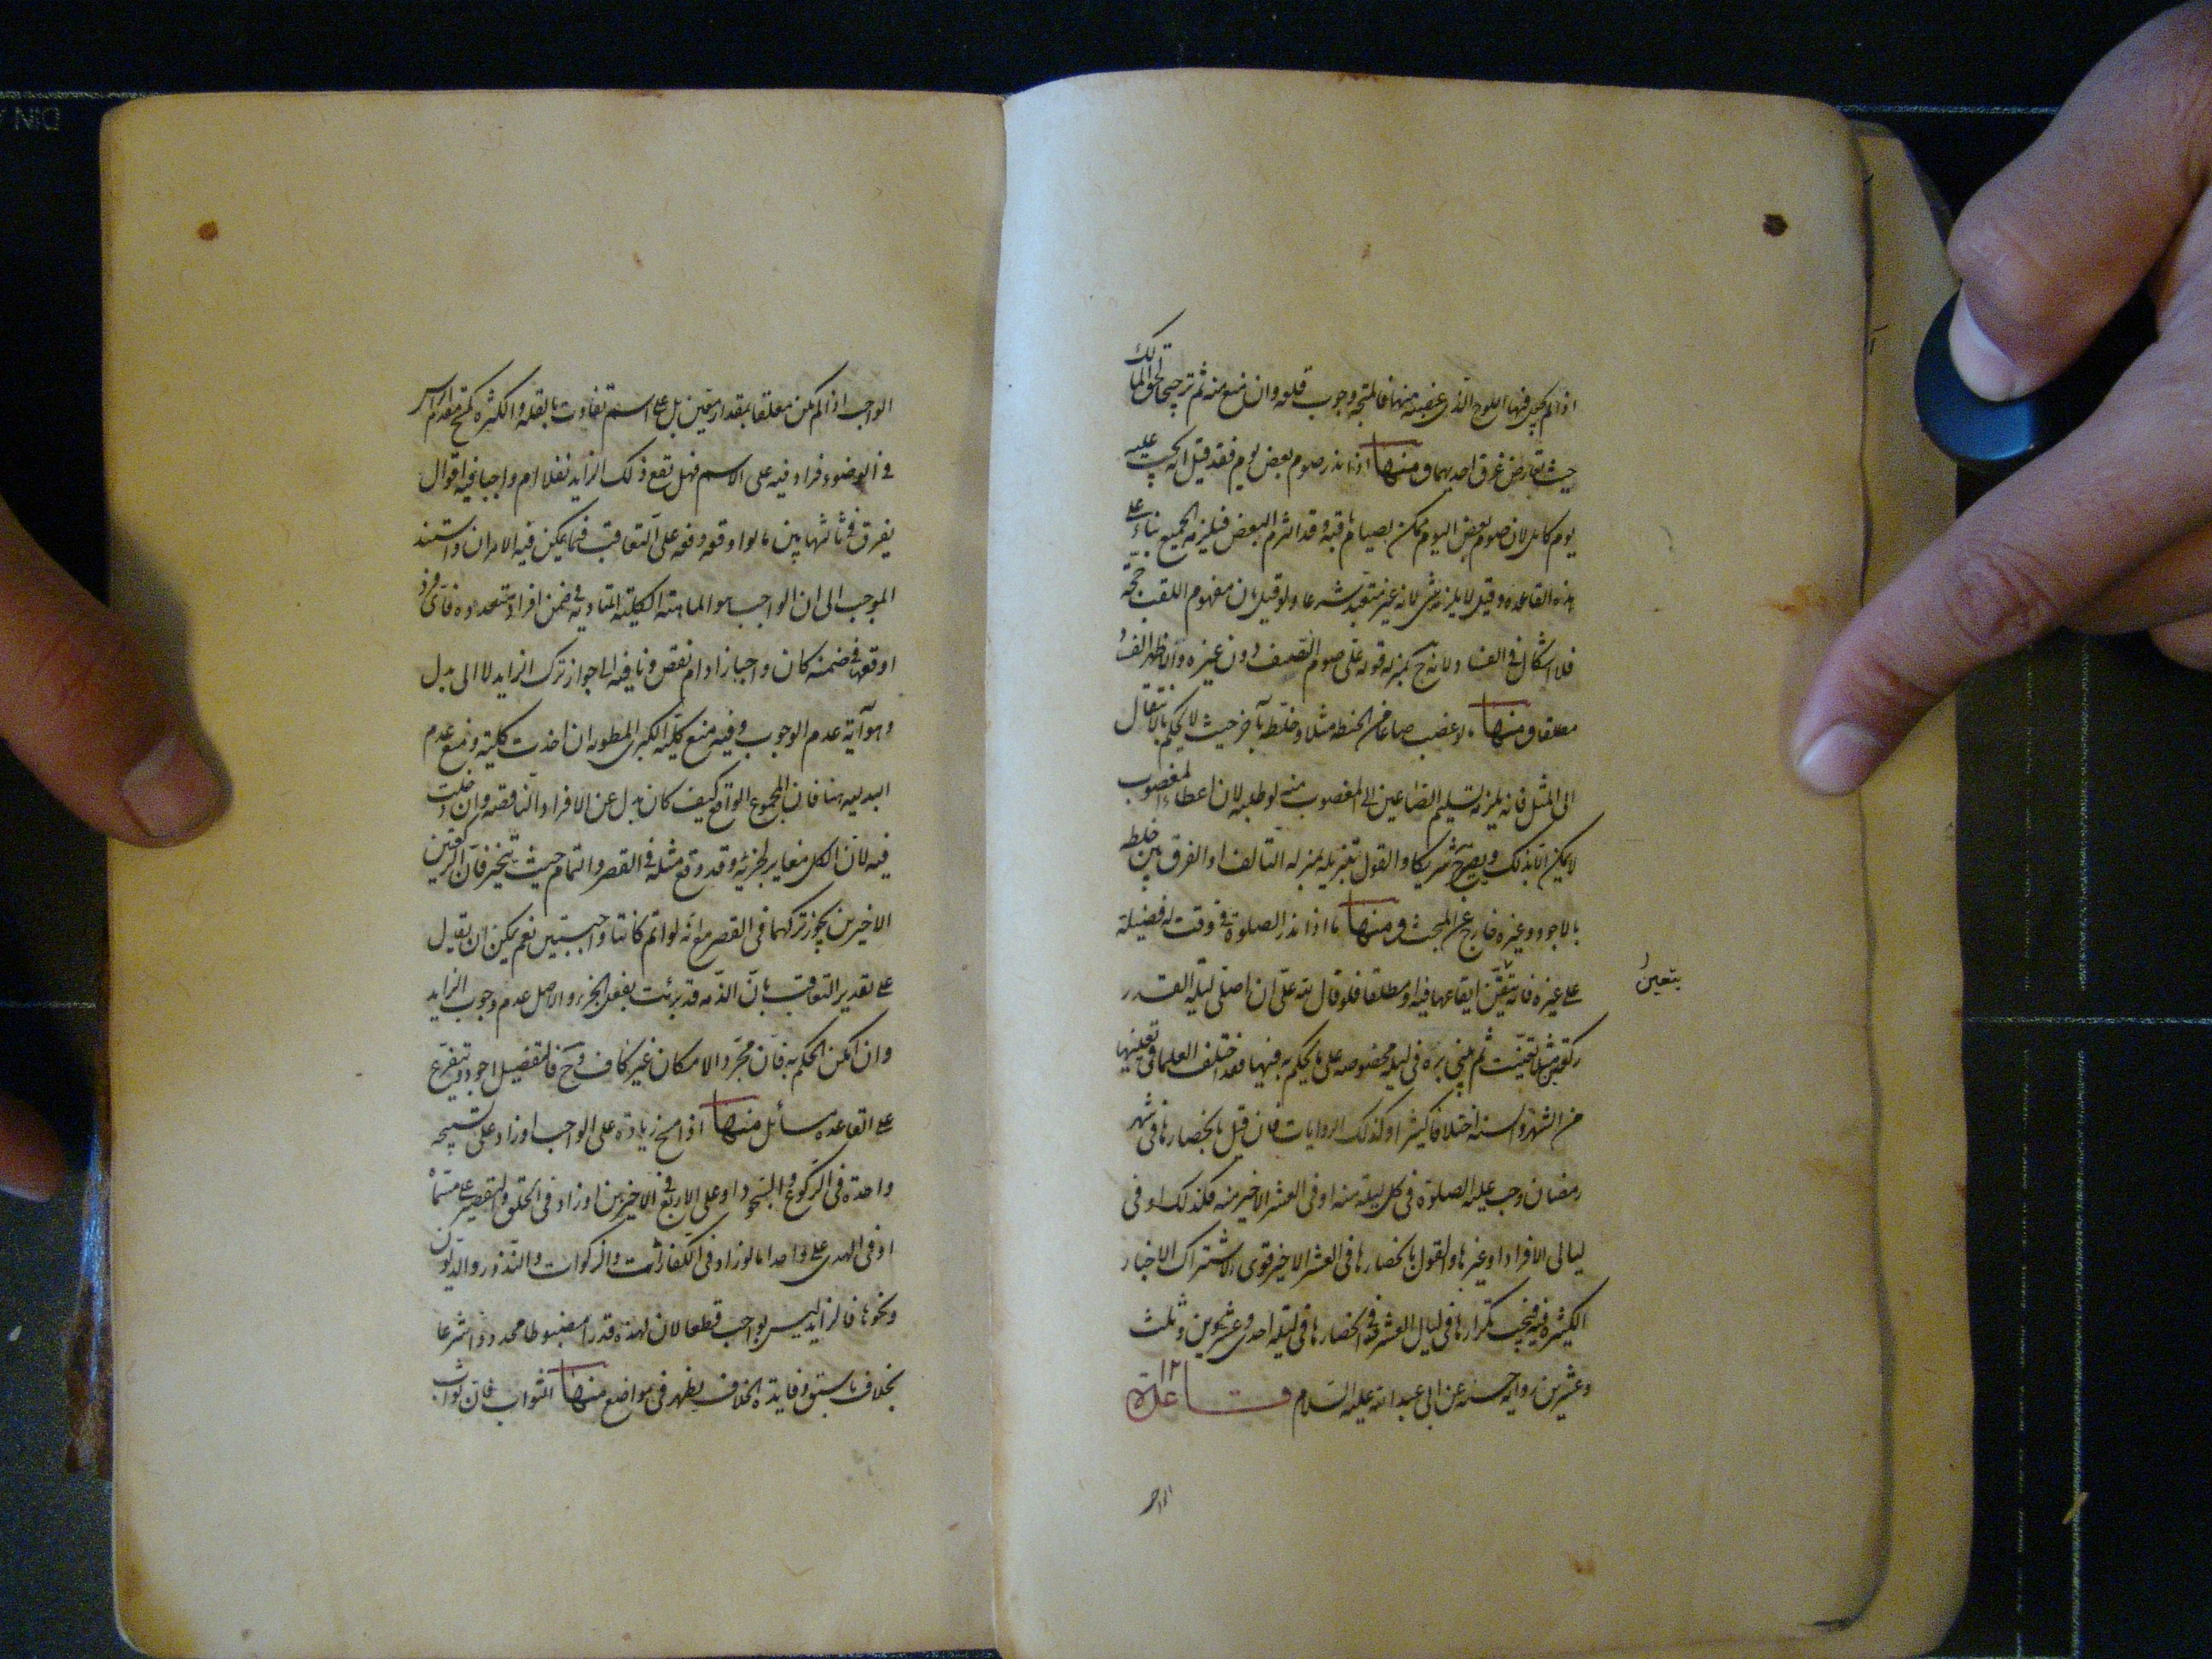 اذا لم يكن فيها اللوح الذى غصبه منها فالمتجه وجوب قلعه وان منع منه ثم ترجيحا لحق المالك
حيث تعارض غرق احديهما ومنها اذا نذر صوم بعض يوم فقد قيل انه يجب عليه
يوم كامل لان صوم بعض اليوم ممكن بصيام باقيه وقد التزم البعض فيلزمه الجميع بناء على
هذه القاعدة وقيل لا يلزمه شئ لانه غير متعبد شرعا ولو قيل بان مفهوم اللقب حجة
فلا اشكال فى الفساد لانه ح بمنزلة قوله على صوم النصف دون غيره وان ظهر الفساد
معلقا ومنها لو غصب صاعا من الحنطة مثلا وخلطه بآخر حيث لا يحكم بالانتقال
الى المثل فانه يلزمه تسليم الصاعين الى المغصوب منه لو طلبه لان اعطاء المغصوب
لا يمكن الا بذلك ويصير شريكا والقول بتنزيله بمنزلة التالف او الفرق بين خلطه
بالاجود وغيره خارج عن المبحث ومنها ما اذا نذر الصلوة فى وقت له فضيلة
على غيره فانه يتعين ايقاعها فيه او مطلقا فلو قال لله على ان اصلى ليلة القدر
يتعين
ركعتين مثلا تعينت ثم ينبى بره فى ليلة مخصوصة على ما يحكم به فيها فقد اختلف العلماء فى تعيينها
من الشهر والسنة اختلافا كثيرا وكذلك الروايات فان قيل بانحصارها فى شهر
رمضان وجب عليه الصلوة فى كل ليلة منه او فى العشر الاخير منه فكذلك او فى
ليالى الافراد او غيرها والقول بانحصارها فى العشر الاخير قوى لاشتراك الاخبار
الكثيرة فيه فيجب تكرارها فى ليالى العشر وفى انحصارها فى ليلة احدى وعشرين وثلث
وعشرين رواية حسنة عن ابى عبد الله عليه السلام قاعدة
الواجب
الواجب اذا لم يكن معلقا بمقدار معين بل على اسم تفاوت بالقلة والكثرة كمسح مقدم الراس
فى الوضوء فزاد فيه على الاسم فهل تقع ذلك الزايد نفلا ام واجبا فيه اقوال
يفرق فى ثالثها بين ما لو اوقعه دفعة وعلى التعاقب فيما يمكن فيه الامران واستند
الموجب الى ان الواجب هو الماهية الكلية المتادية فى ضمن افراد متعددة فاى فرد
اوقعها فى ضمنه كان واجبا زاد ام نقص ونافيه الى جواز ترك الزايد لا الى بدل
وهو آية عدم الوجوب وفيه منع كلية الكبرى المطوية ان اخذت كلية ومنع عدم
البدلية هنا فان المجموع الواقع كيف كان بدل عن الافراد الناقصة وان دخلت
فيه لان الكل مغاير لجزئه وقد وقع مثله فى القصر والتمام حيث يتخير فان الركعتين
الاخيرين يجوز تركهما فى القصر مع انه لو اتم كانتا واجبتين نعم يمكن ان يقال
على تقدير التعاقب بان الذمة قد برئت بفعل الجزء والاصل عدم وجوب الزايد
وان امكن الحكم به فان مجرد الامكان غير كاف وح فالتفصيل اجود ويتفرع
على القاعدة مسائل منها اذا مسح زيادة على الواجب او زاد على تسبيحة
واحدة فى الركوع والسجود او على الاربع فى الاخيرين او زاد فى الحلق والتقصير على مسماه
او فى الهدى على واحد اما لو زاد فى الكفارات والزكوات والنذور والديون
ونحوها فالزايد ليس بواجب قطعا لان لهذه قدرا مضبوطا محدودا شرعا
بخلاف ما سبق وفايدة الخلاف يظهر فى مواضع منها الثواب فان ثواب